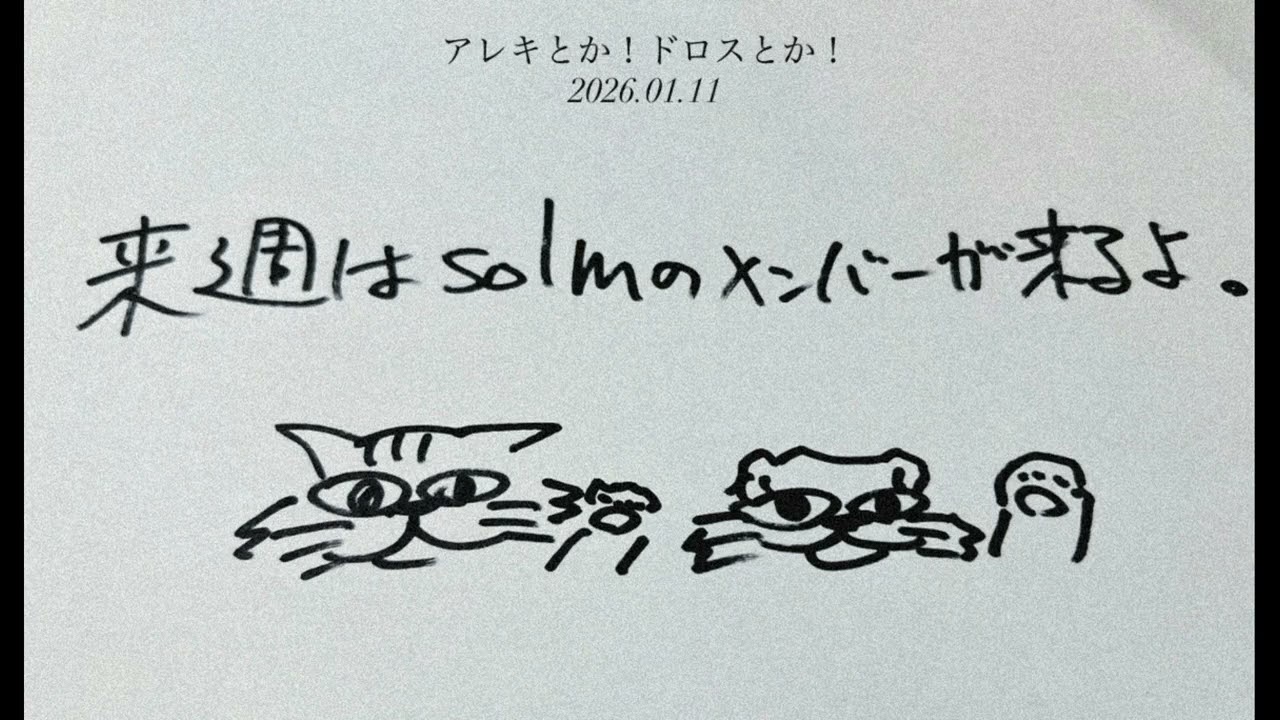 アレキとか！ドロスとか！
2026.01.11
来週はsolmのメンバーが来るよ。